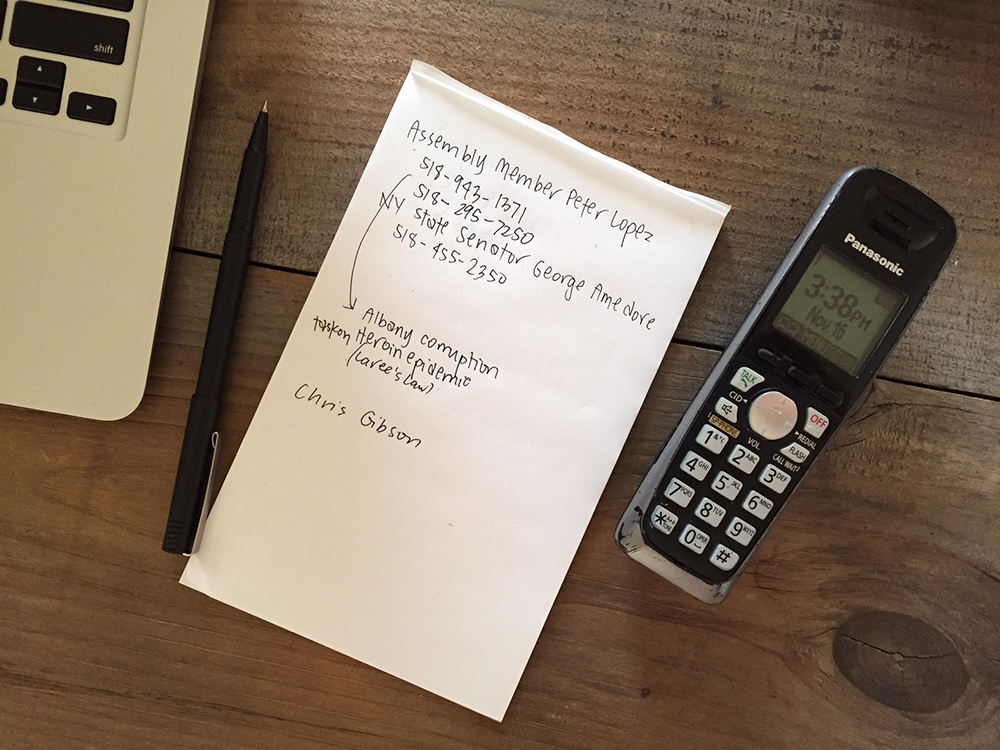 shift
Assembly Member Peter Lopez
518-943-1371
518-295-7250
NY State Senator George Amedore
518-455-2350
Albany corruption
Heroin epidemic
(Laree's Law)
Chris Gibson
Panasonic
3:38PM
Nov.16
TALK
OFF
CID
REDIAL
SP-PHONE
VOL
FLASH
CALL WAIT
1
2 ABC
3 DEF
4 GHI
5 JKL
6 MNO
7 PQRS
8 TUV
9 WXYZ
* TONE
0 OPER
#